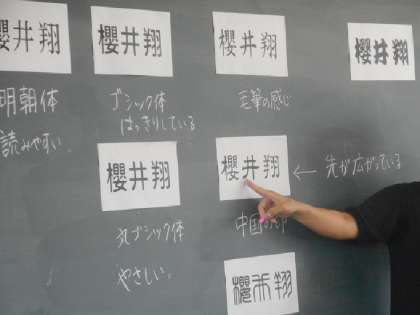 櫻井翔
櫻井翔
櫻井翔
櫻井翔
明朝体
読みやすい。
ゴシック体
はっきりしている
毛筆の感じ
櫻井翔
櫻井翔
← 先が広がっている
丸ゴシック体
やさしい。
中国の
櫻井翔